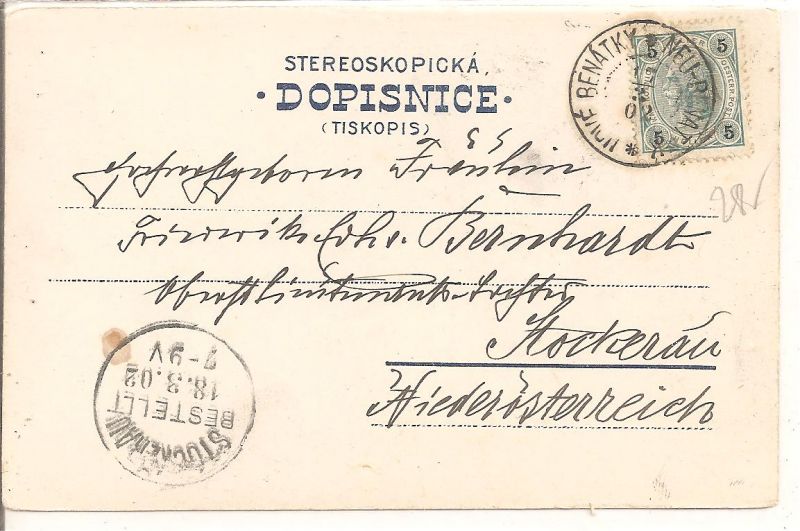 STEREOSKOPICKÁ
· DOPISNICE ·
(TISKOPIS)
5 5
5 5
NOVÉ BENÁTKY * NEU-BENATEK *
Hochwohlgeboren Fräulein
Friederike Edle v. Bernhardt
Oberstlieutenants-Tochter
Stockerau
Niederösterreich
STOCKERAU
BESTELLT
18.3.02
7-9V